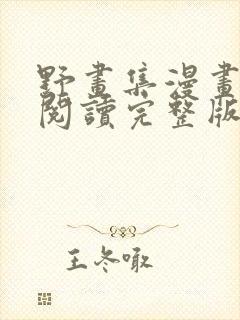 野畫集漫畫
閱讀完整版
王冬噉